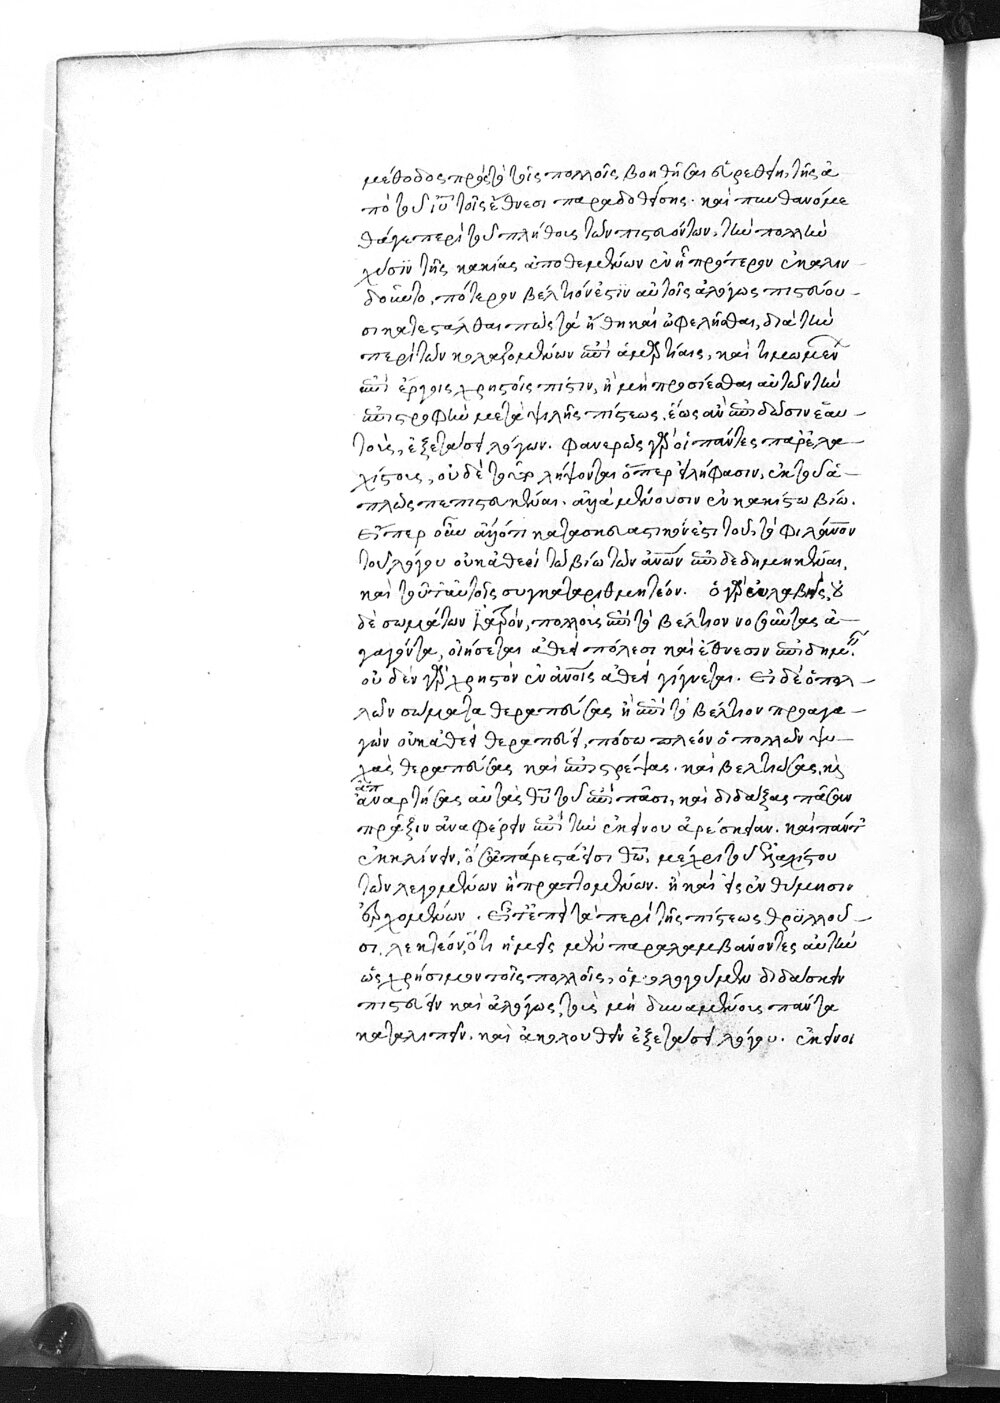 μέθοδος πρὸς τὸ τοῖς πολλοῖς βοηθῆσαι εὑρεθείη, τῆς ἀ
πὸ τοῦ ἰῦ τοῖς ἔθνεσι παραδοθείσης. καὶ πυνθανόμε
θά γε περὶ τοῦ πλήθους τῶν πιστευόντων, τὴν πολλὴν
χύσιν τῆς κακίας ἀποθεμένων ἐν ᾗ πρότερον ἐκαλιν
δοῦντο, πότερον βέλτιόν ἐστιν αὐτοῖς ἀλόγως πιστεύου
σι κατεστάλθαι πως τὰ ἤθη καὶ ὠφελῆσθαι, διὰ τὴν
περὶ τῶν κολαζομένων ἐπὶ ἁμαρτίαις, καὶ τιμωμένων
ἐπὶ ἔργοις χρηστοῖς πίστιν, ἢ μὴ προσίεσθαι αὐτῶν τὴν
ἐπιστροφὴν μετὰ ψιλῆς πίστεως, ἕως ἂν ἐπιδῶσιν ἑαυ
τοὺς, ἐξετάσει λόγων. φανερῶς γὰρ οἱ πάντες παρ' ἐλα
χίστους, οὐδὲ τοῦτο λήψονται ὅπερ εἰλήφασιν, ἐκ τοῦ ἁ
πλῶς πεπιστευκέναι. ἀλλὰ μένουσιν ἐν κακίστῳ βίῳ.
Εἴπερ οὖν ἄλλό τι κατασκευαστικόν ἐστι τοῦ, τὸ φιλάνον
τοῦ λόγου οὐκ ἀθεεὶ τῷ βίῳ τῶν ἀνῶν ἐπιδεδημηκέναι,
καὶ τοῦτ' αὐτοῖς συγκαταριθμητέον. ὁ γὰρ εὐλαβὴς, οὐ
δὲ σωμάτων ἰατρὸν, πολλοὺς ἐπὶ τὸ βέλτιον νοσοῦντας ἀ
γαγόντα, οἰήσεται ἀθεεὶ πόλεσι καὶ ἔθνεσιν ἐπιδημεῖν.
οὐδὲν γὰρ χρηστὸν ἐν ἀνοῖς ἀθεεὶ γίγνεται. Εἰ δὲ ὁ πολ
λῶν σώματα θεραπεύσας ἢ ἐπὶ τὸ βέλτιον προαγα
γὼν οὐκ ἀθεεὶ θεραπεύει, πόσῳ πλέον ὁ πολλῶν ψυ
χὰς θεραπεύσας καὶ ἐπιστρέψας. καὶ βελτιώσας, κὶ
ἀπ
ἀναρτήσας αὐτὰς θῦ τοῦ ἐπὶ πᾶσι, καὶ διδάξας πᾶσαν
πρᾶξιν ἀναφέρειν ἐπὶ τὴν ἐκείνου ἀρέσκειαν. καὶ πάντ'
ἐκκλίνειν, ὅσ' ἀπάρεστά εἰσι θῶ, μέχρι τοῦ ἐλαχίστου
τῶν λεγομένων ἢ πραττομένων. ἢ καὶ εἰς ἐνθύμησιν
ἐρχομένων. Εἶτ' ἐπεὶ τὰ περὶ τῆς πίστεως θρϋλλοῦ
σι, λεκτέον, ὅτι ἡμεῖς μὲν παραλαμβάνοντες αὐτὴν
ὡς χρήσιμον τοῖς πολλοῖς, ὁμολογοῦμεν διδάσκειν
πιστεύειν καὶ ἀλόγως, τοὺς μὴ δυναμένους πάντα
καταλιπεῖν. καὶ ἀκολουθεῖν ἐξετάσει λόγου. ἐκεῖνοι